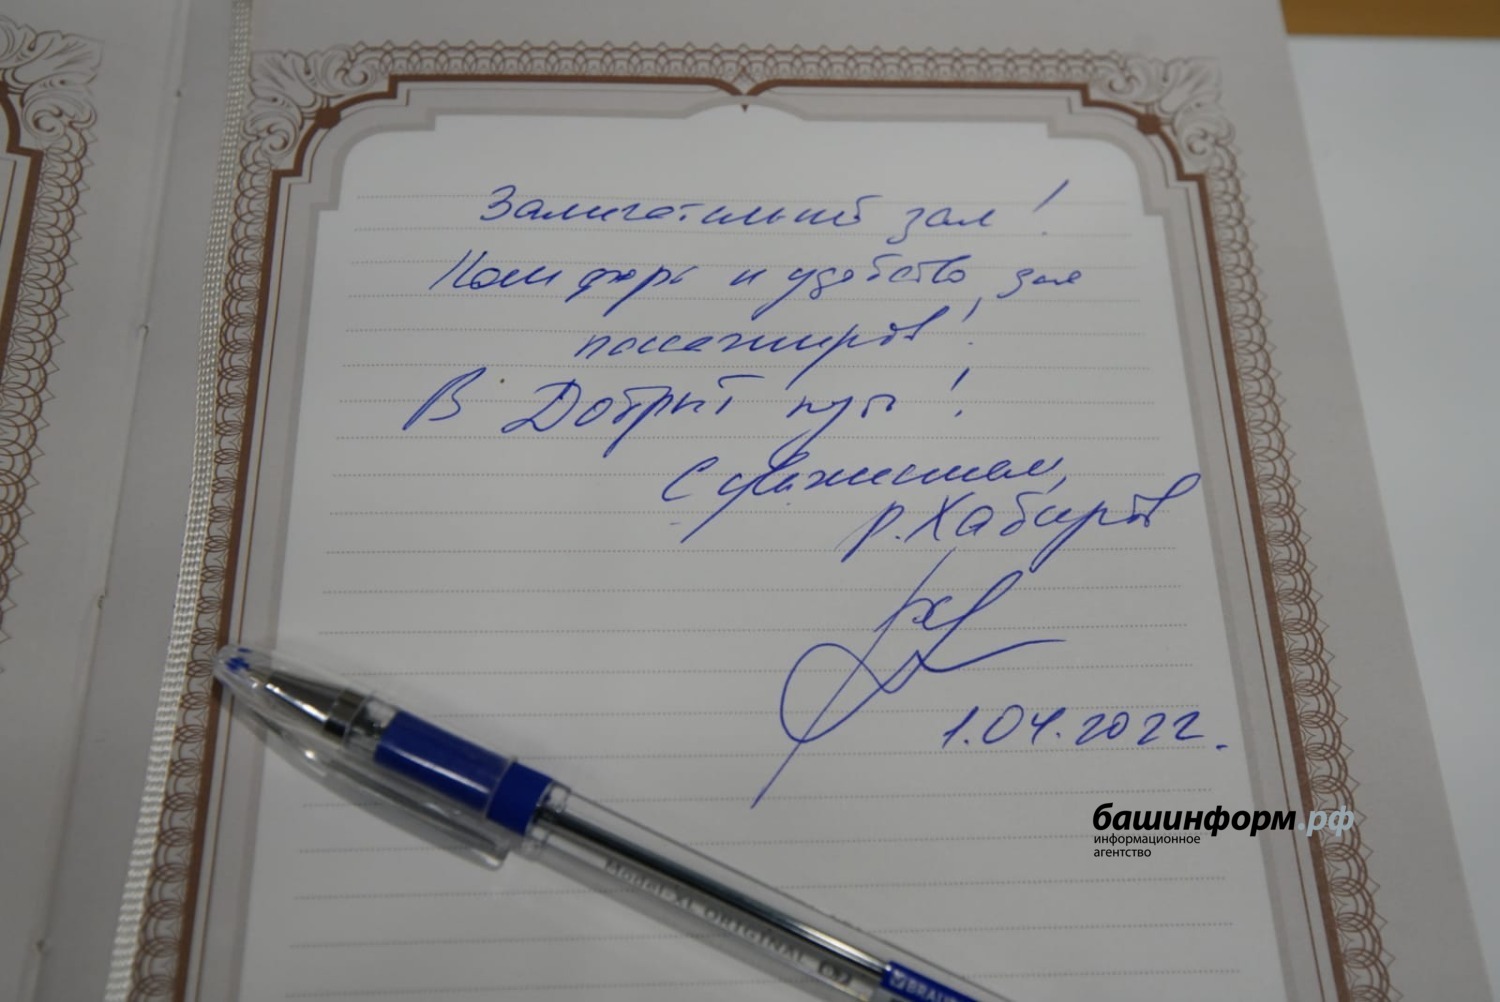 Замечательный зал!
Комфорт и удобство для
пассажиров!
В Добрый путь!
С уважением,
Р. Хабиров
1.04.2022.
башинформ.рф
информационное
агентство
Model-XL ORIGINAL 0,7
BRAU